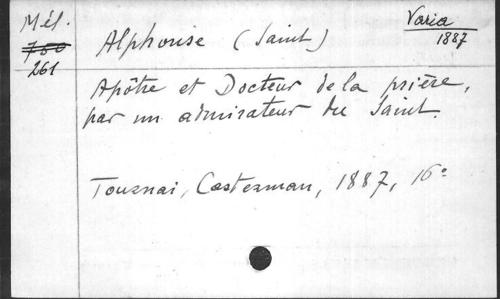 Mél.
750
261
Varia
1887
Alphonse (Saint)
Apôtre et Docteur de la prière,
par un admirateur du Saint.
Tournai, Casterman, 1887, 16°